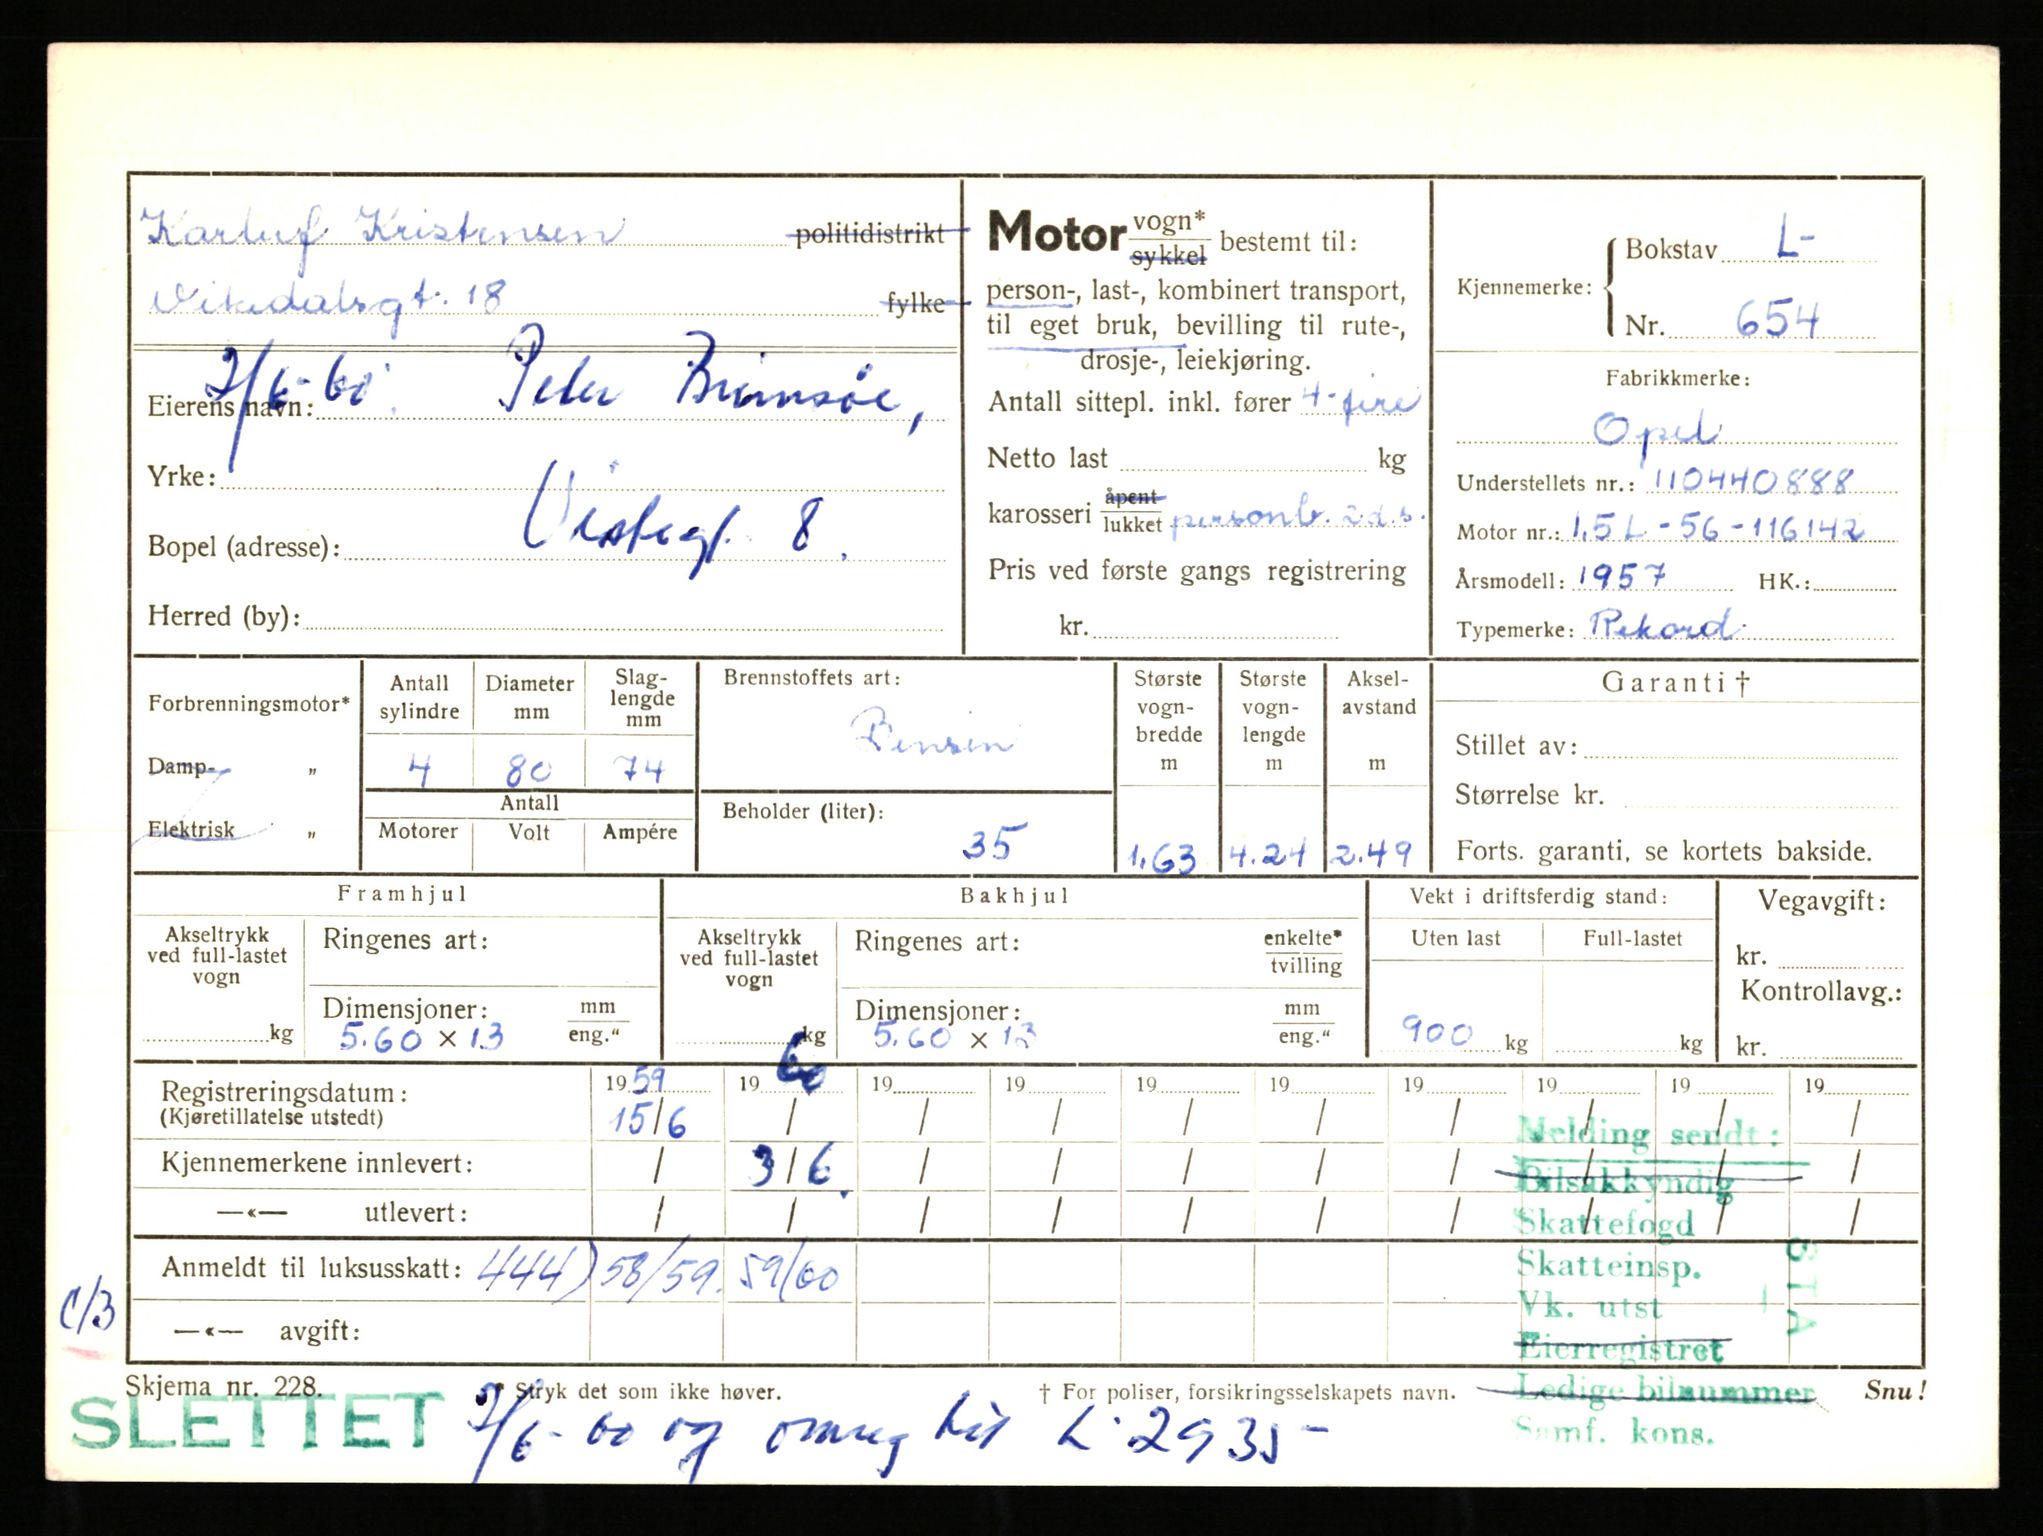 Karluf Kristensen politidistrikt
Vikedalsgt. 18 fylke
7/6-60. Peter Brimsøe,
Eierens navn:
Yrke:
Bopel (adresse): Vistegt. 8.
Herred (by):
Motor vogn* sykkel bestemt til:
person-, last-, kombinert transport,
til eget bruk, bevilling til rute-,
drosje-, leiekjøring.
Antall sittepl. inkl. fører 4-fire
Netto last kg
karosseri åpent lukket personb. 2d.s.
Pris ved første gangs registrering
kr.
Kjennemerke: Bokstav L-
Nr. 654
Fabrikkmerke:
Opel
Understellets nr.: 110440888
Motor nr.: 1,5L-56-116142
Årsmodell: 1957 HK.:
Typemerke: Rekord
Forbrenningsmotor*
Damp- „
Elektrisk „
Antall sylindre
4
Diameter mm
80
Slag-lengde mm
74
Antall
Motorer Volt Ampére
Brennstoffets art:
Bensin
Beholder (liter):
35
Største vogn-bredde m
1.63
Største vogn-lengde m
4.24
Aksel-avstand m
2.49
Garanti †
Stillet av:
Størrelse kr.
Forts. garanti, se kortets bakside.
Framhjul
Akseltrykk ved full-lastet vogn
kg
Ringenes art:
Dimensjoner: mm eng."
5.60 x 13
Bakhjul
Akseltrykk ved full-lastet vogn
kg
Ringenes art: enkelte* tvilling
Dimensjoner: mm eng."
5.60 x 13
Vekt i driftsferdig stand:
Uten last Full-lastet
900 kg kg
Vegavgift:
kr.
Kontrollavg.:
kr.
Registreringsdatum: 1959 1960 19 19 19 19 19 19 19 19
(Kjøretillatelse utstedt) 15/6 / / / / / / / / /
Kjennemerkene innlevert: / 3/6. / / / / / / / /
—«— utlevert: / / / / / / / / / /
Anmeldt til luksusskatt: 444) 58/59. 59/60
—«— avgift:
C/3
Melding sendt:
Bilsakkyndig
Skattefogd
Skatteinsp.
Vk. utst
Eierregistret
Ledige bilnummer
Samf. kons.
STA
Skjema nr. 228. * Stryk det som ikke høver. † For poliser, forsikringsselskapets navn. Snu!
SLETTET 7/6-60 og omreg til L-2935-